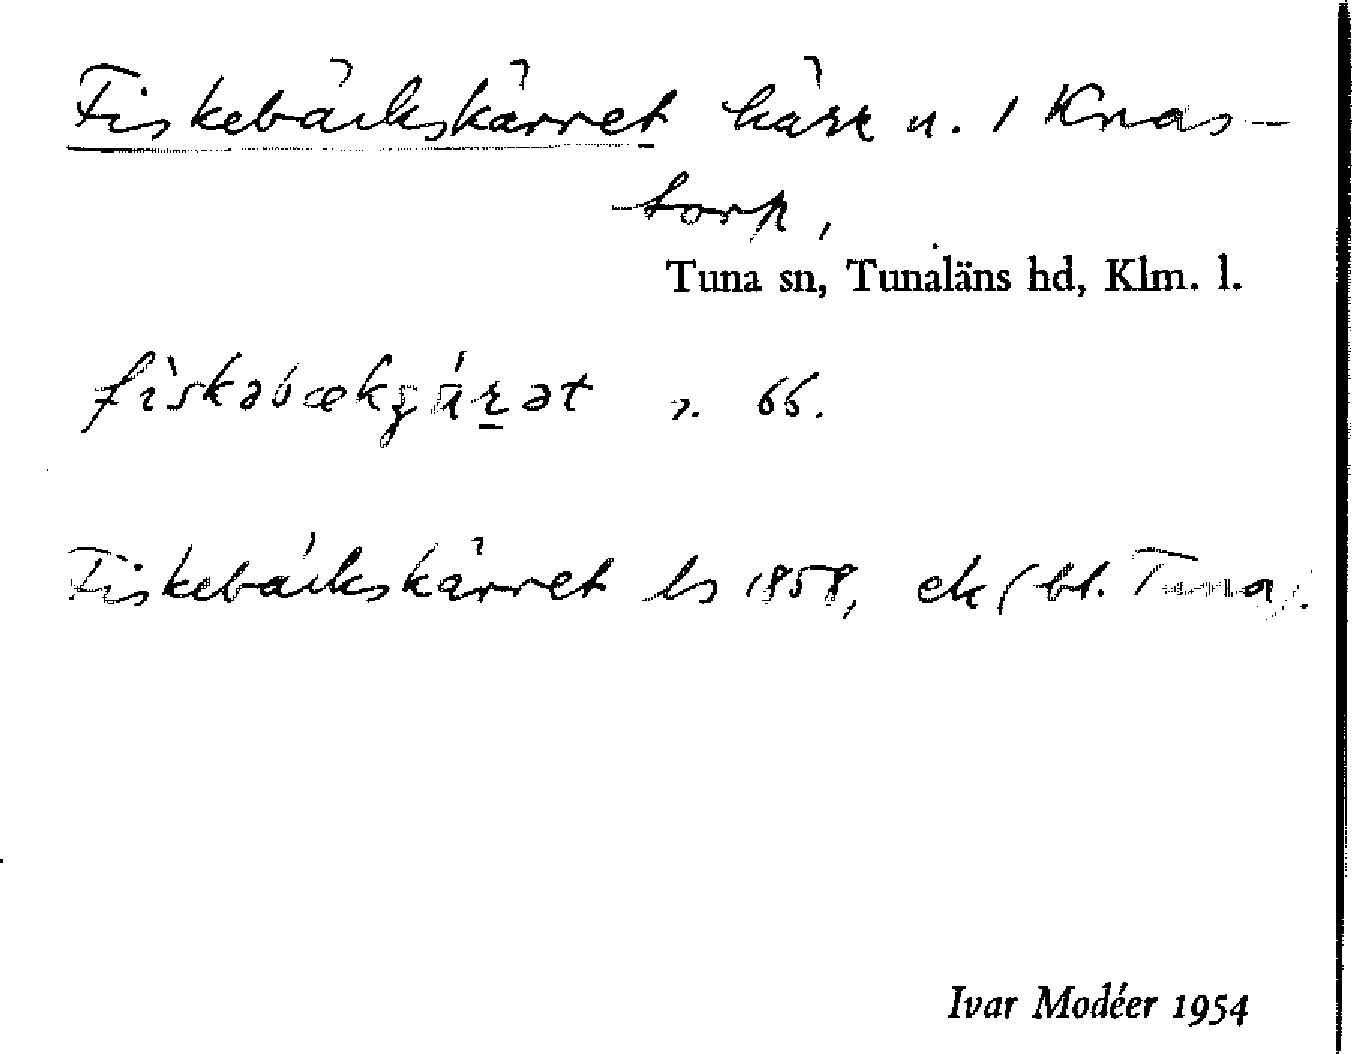 Fiskebäckskärret kärr n. 1 Knas-
torp,
Tuna sn, Tunaläns hd, Klm. l.
66.
Fiskebäckskärret ls 1858, ek (bl. Tuna).
Ivar Modéer 1954